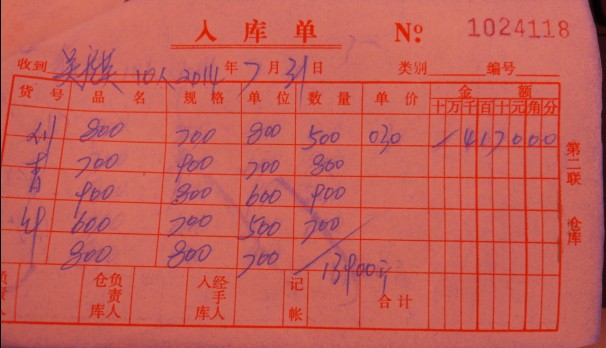 入库单 № 1024118
收到 10人 2014年7月31日 类别 编号
货号 品名 规格 单位 数量 单价 金额
十万千百十元角分
800 700 800 500 030 417000
青 700 900 700 800
900 800 600 900
600 700 500 700
800 800 700 13900
第二联 仓库
负责人 仓库负责人 入库经手人 记帐 合计